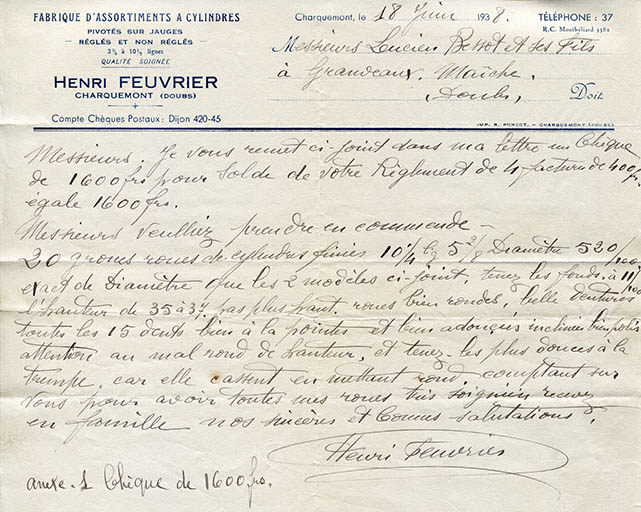 FABRIQUE D'ASSORTIMENTS A CYLINDRES
PIVOTÉS SUR JAUGES
RÉGLÉS ET NON RÉGLÉS
3¾ à 10½ lignes
QUALITÉ SOIGNÉE
HENRI FEUVRIER
CHARQUEMONT (DOUBS)
Compte Chèques Postaux: Dijon 420-45
Charquemont, le 18 Juin 1938.
TÉLÉPHONE : 37
R.C. Montbéliard 3581
Messieurs Lucien Bessot et ses Fils
à Grandeaux. Maîche.
Doubs, Doit
IMP. R. PONCOT. — CHARQUEMONT (DOUBS)
Messieurs. Je vous remet ci-joint dans ma lettre un Chèque
de 1600 frs pour Solde de votre Règlement de 4 factures de 400 frs
égale 1600 frs.
Messieurs Veuillez prendre en commende -
20 groses roues de cylindres finies 10½ 5 2/8 Diamètre 520/100
exact de Diamètre que les 2 modèles ci-joint, tenez les fonds à 11/100
d'hauteur de 35 à 37 pas plus haut. roues bien rondes, belle dentures
toutes les 15 dents bien à la pointes et bien adoucies inclinées bien polis
attention au mal rond de hauteur, et tenez-les plus douces à la
trempe, car elle cassent en mettant rond, comptant sur
Vous pour avoir toutes mes roues très soignien recevez
en famille nos sincères et bonnes salutations.
Henri Feuvrier
anxe. 1 Chèque de 1600 frs.